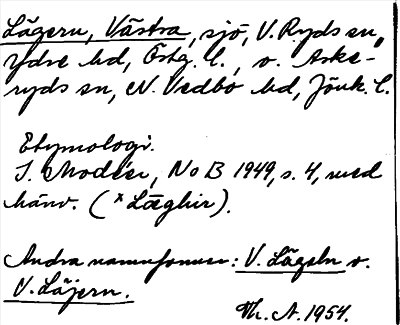 Lägern, Västra, sjö, V. Ryds sn,
Ydre hd, Östg. l., o. Aske-
ryds sn, N. Vedbo hd, Jönk. l.
Etymologi.
I. Modéer, NoB 1949, s. 4, med
hänv. (*Læghir).
Andra namnformer: V. Lägeln o.
V. Läjern.
Th. A. 1954.